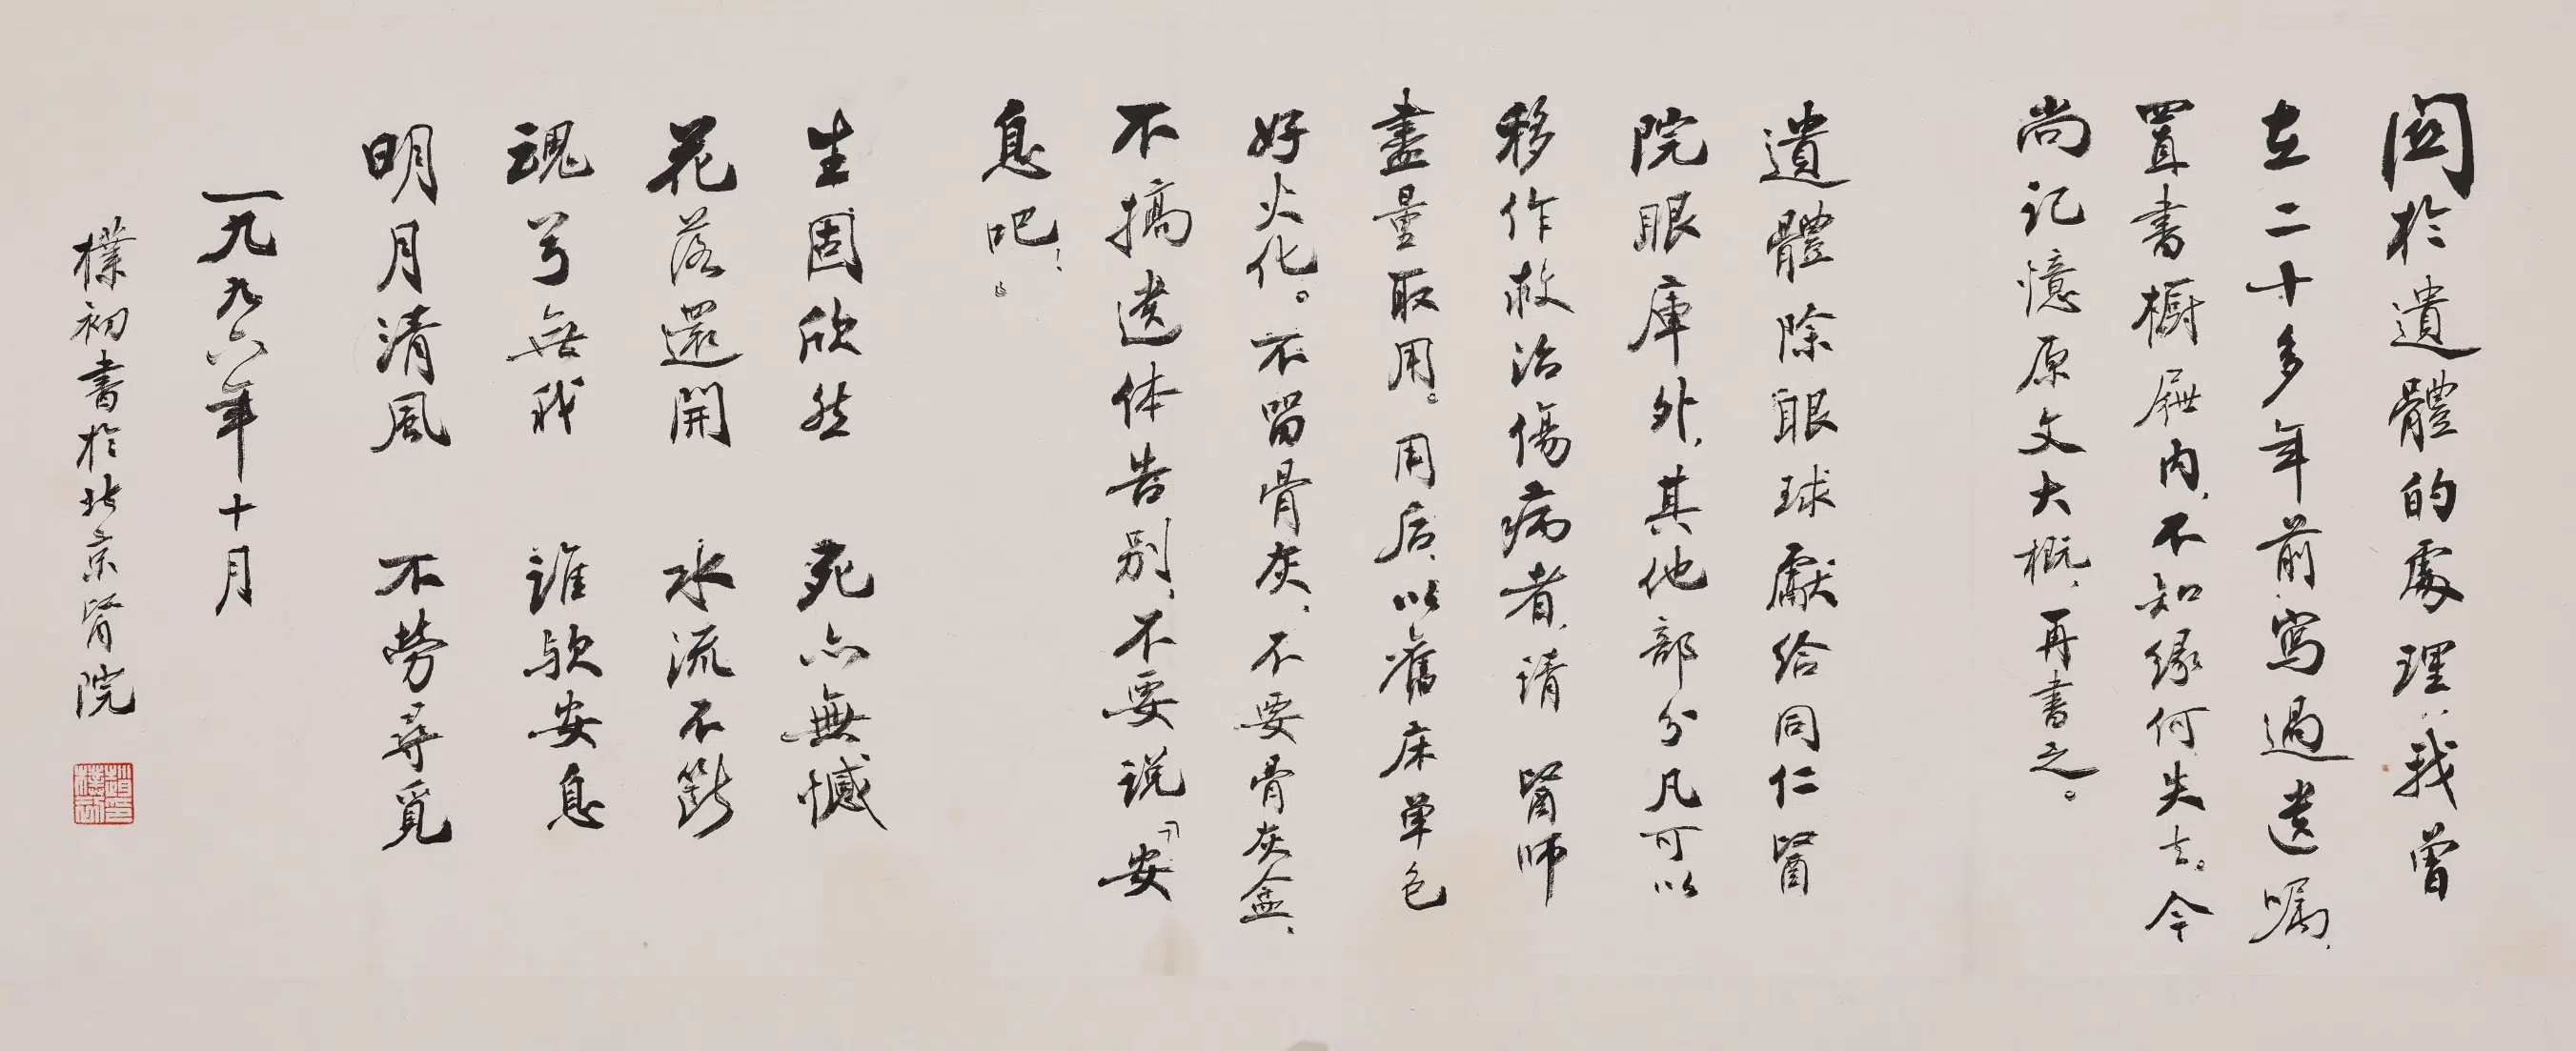 関於遺體的處理，我曾
在二十多年前寫過遺嘱，
置書橱屜内，不知缘何失去。今
尚记憶原文大概，再書之。
遺體除眼球獻给同仁醫
院眼庫外，其他部分凡可以
移作救治傷病者，请醫师
盡量取用。用后，以舊床单包
好火化。不留骨灰，不要骨灰盒，
不搞遗体告别，不要说「安
息吧！」
生固欣然 死亦無憾
花落還開 水流不斷
魂兮無我 誰欤安息
明月清風 不勞尋覓
一九九六年十月
樸初書於北京醫院
趙樸初印